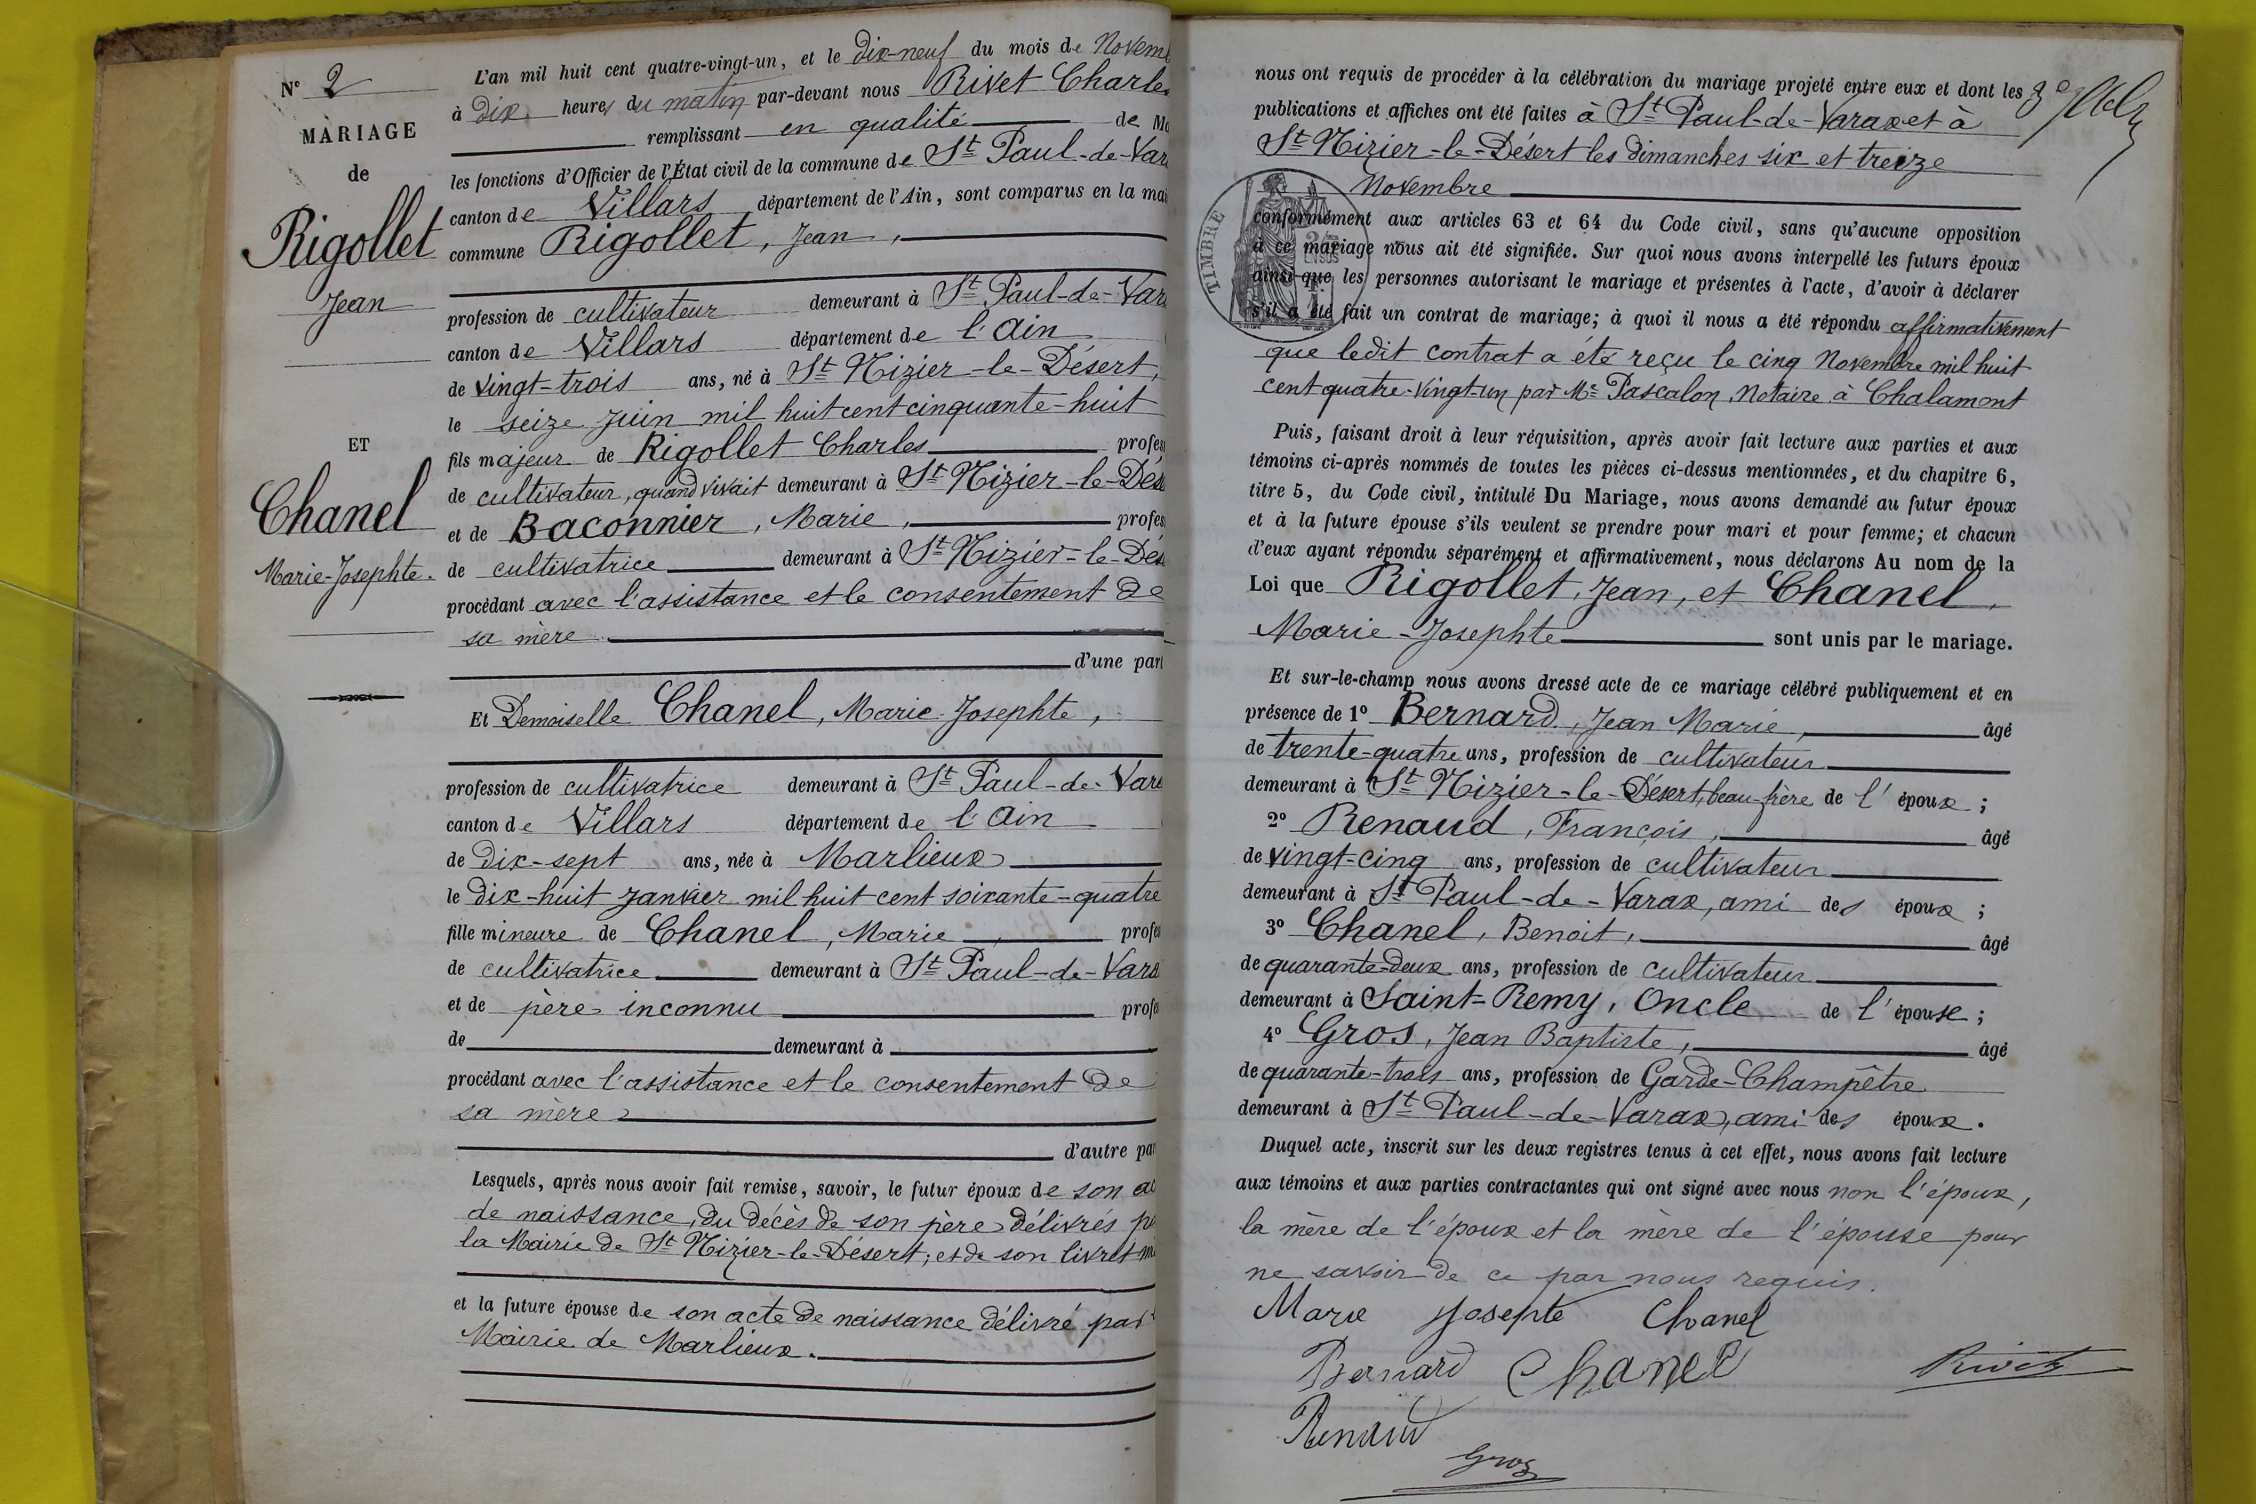 N° 2
MARIAGE
de
Rigollet
Jean
ET
Chanel
Marie-Josephte.
L'an mil huit cent quatre-vingt-un, et le dix-neuf du mois de Novem
à dix heures du matin par-devant nous Rivet Charles
remplissant en qualité de M
les fonctions d'Officier de l'État civil de la commune de St Paul-de-Var
canton de Villars département de l'Ain, sont comparus en la mai
commune Rigollet, Jean,
profession de cultivateur demeurant à St Paul-de-Var
canton de Villars département de l'Ain
de vingt-trois ans, né à St Nizier-le-Désert,
le seize Juin mil huit cent cinquante-huit
fils majeur de Rigollet Charles profes
de cultivateur, quand vivait demeurant à St Nizier-le-Dés
et de Baconnier, Marie, profes
de cultivatrice demeurant à St Nizier-le-Dés
procédant avec l'assistance et le consentement de
sa mère
d'une part
Et Demoiselle Chanel, Marie-Josephte,
profession de cultivatrice demeurant à St Paul-de-Vara
canton de Villars département de l'Ain
de dix-sept ans, née à Marlieux
le dix-huit Janvier mil huit cent soixante-quatre
fille mineure de Chanel, Marie, profes
de cultivatrice demeurant à St Paul-de-Vara
et de père inconnu profes
de demeurant à
procédant avec l'assistance et le consentement de
sa mère
d'autre pa
Lesquels, après nous avoir fait remise, savoir, le futur époux de son ac
de naissance, du décès de son père délivrés p
la Mairie de St Nizier-le-Désert; et de son livret mi
et la future épouse de son acte de naissance délivré par
Mairie de Marlieux.
nous ont requis de procéder à la célébration du mariage projeté entre eux et dont les
publications et affiches ont été faites à St Paul-de-Varax et à
St Nizier-le-Désert les dimanches six et treize
Novembre
TIMBRE
conformément aux articles 63 et 64 du Code civil, sans qu'aucune opposition
à ce mariage nous ait été signifiée. Sur quoi nous avons interpellé les futurs époux
ainsi que les personnes autorisant le mariage et présentes à l'acte, d'avoir à déclarer
s'il a été fait un contrat de mariage; à quoi il nous a été répondu affirmativement
que ledit contrat a été reçu le cinq Novembre mil huit
cent quatre-vingt-un par Me Pascalon Notaire à Chalamont
Puis, faisant droit à leur réquisition, après avoir fait lecture aux parties et aux
témoins ci-après nommés de toutes les pièces ci-dessus mentionnées, et du chapitre 6,
titre 5, du Code civil, intitulé Du Mariage, nous avons demandé au futur époux
et à la future épouse s'ils veulent se prendre pour mari et pour femme; et chacun
d'eux ayant répondu séparément et affirmativement, nous déclarons Au nom de la
Loi que Rigollet, Jean, et Chanel,
Marie-Josephte sont unis par le mariage.
Et sur-le-champ nous avons dressé acte de ce mariage célébré publiquement et en
présence de 1° Bernard, Jean Marie, âgé
de trente-quatre ans, profession de cultivateur
demeurant à St Nizier-le-Désert, beau-frère de l'époux;
2° Renaud, François, âgé
de vingt-cinq ans, profession de cultivateur
demeurant à St Paul-de-Varax, ami des époux;
3° Chanel, Benoit, âgé
de quarante-deux ans, profession de cultivateur
demeurant à Saint-Remy, Oncle de l'épouse;
4° Gros, Jean Baptiste, âgé
de quarante-trois ans, profession de Garde-Champêtre
demeurant à St Paul-de-Varax, ami des époux.
Duquel acte, inscrit sur les deux registres tenus à cet effet, nous avons fait lecture
aux témoins et aux parties contractantes qui ont signé avec nous non l'époux,
la mère de l'époux et la mère de l'épouse pour
ne savoir de ce par nous requis.
Marie Josephte Chanel
Bernard Chanel Rivet
Renaud
Gros